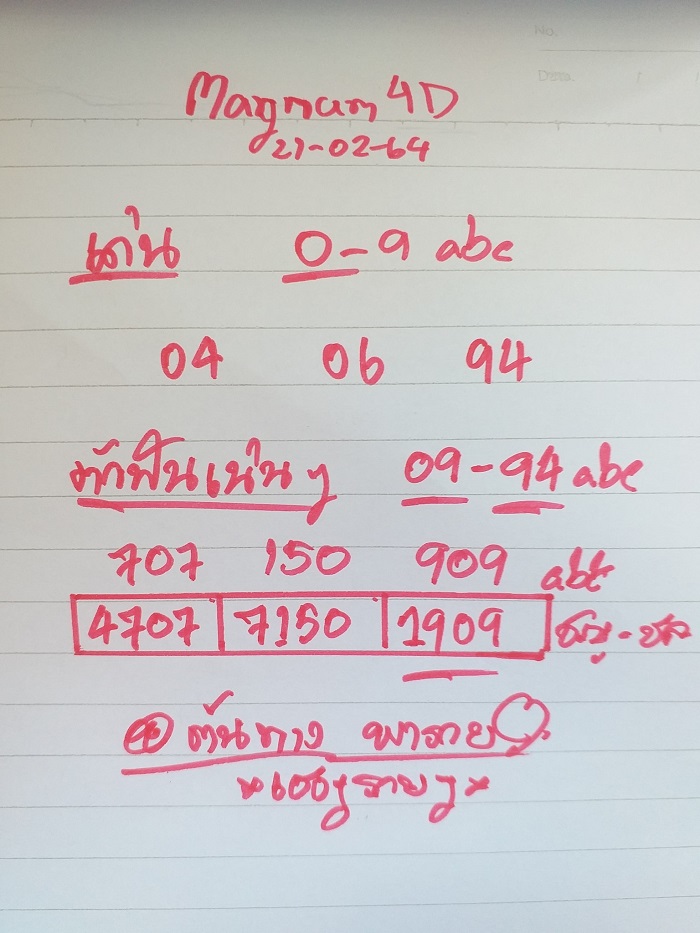 No.
Date.
Magnum 4D
21-02-64
เด่น 0-9 abc
04 06 94
ฟันเน้นๆ 09-94 abc
707 150 909 abc
4707 7150 1909
ต้นทาง พารวย
รวยๆ